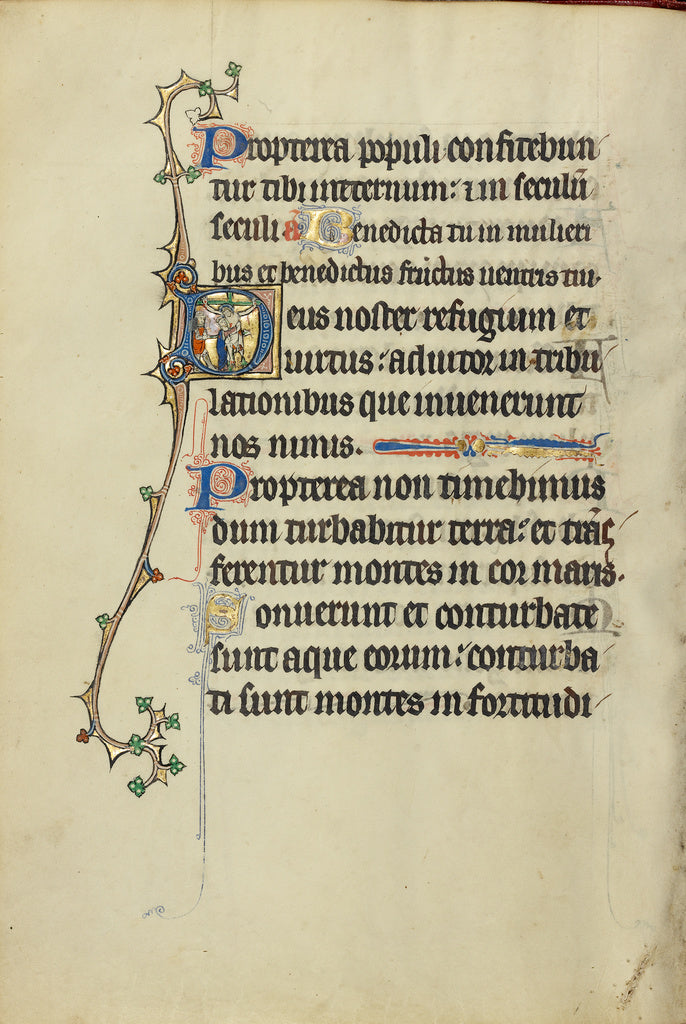 Propterea populi confitebun
tur tibi ineternum: ⁊ in seculū
seculi a Benedicta tu in mulieri
bus et benedictus fructus uentris tui.
Deus noster refugium et
uirtus: adiutor in tribu
lationibus que inuenerunt
nos nimis.
Propterea non timebimus
dum turbabitur terra: et trās
ferentur montes in cor maris.
Sonuerunt et conturbate
sunt aque eorum: conturba
ti sunt montes in fortitudi